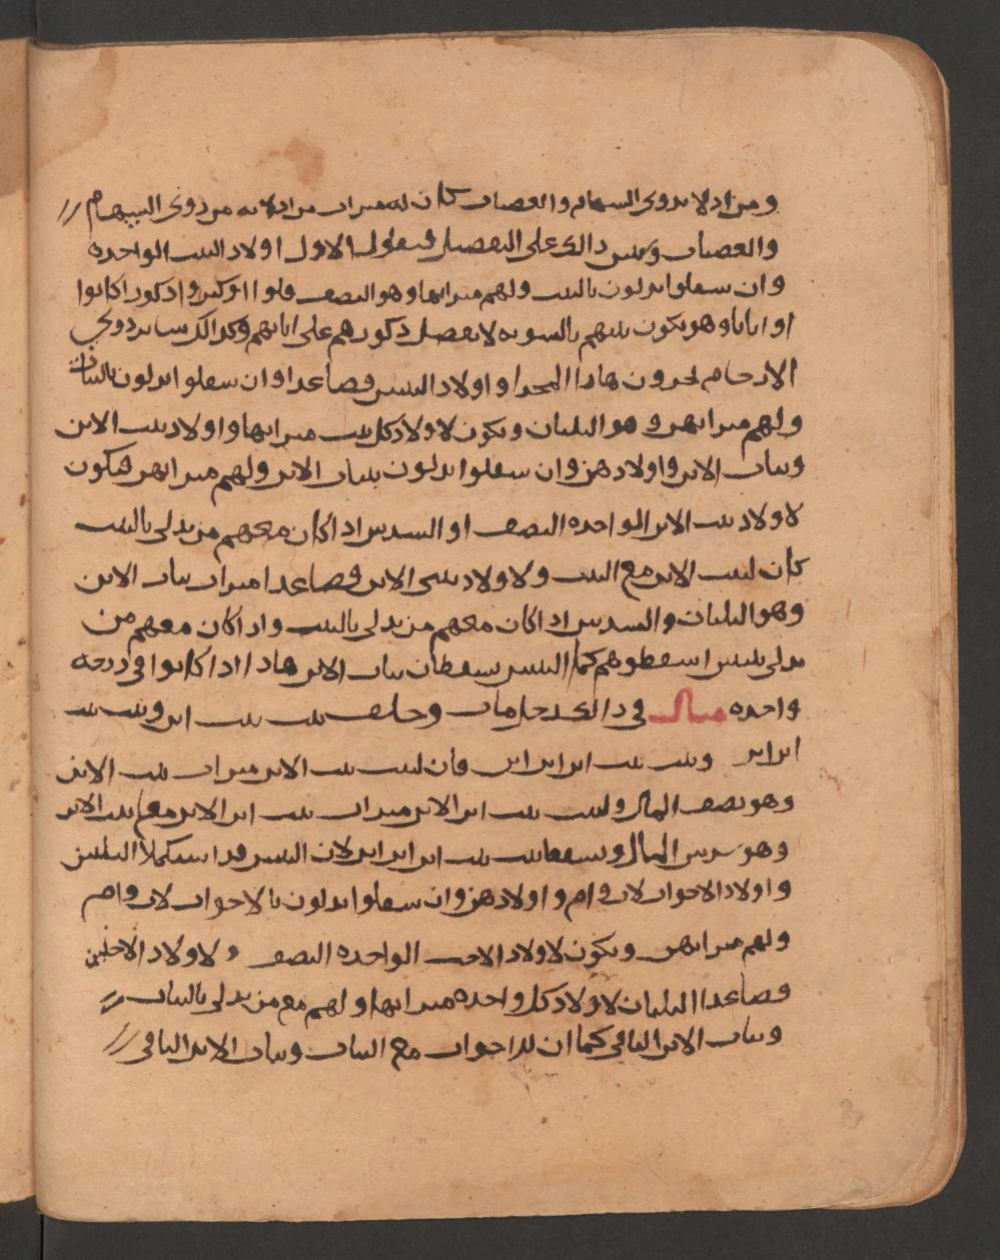 ومن ادلا بذوي السهام والعصبات كان له ميراث من ادلا به من ذوي السهام
والعصبات ونبين ذالك على التفصيل فنقول الاول اولاد البنت الواحده
وان سفلوا يدلون بالبنت ولهم ميراثها وهو النصف قلوا او كثروا ذكورا كانوا
او اناثا وهو يكون بينهم بالسويه لا يفضل ذكورهم على اناثهم وكذالك سائر ذوي
الارحام يجرون هاذا المجرا واولاد البنتين فصاعدا وان سفلوا يدلون بالبنات
ولهم ميراثهن وهو الثلثان ويكون لاولاد كل بنت ميراثها واولاد بنت الابن
وبنات الابن واولادهن وان سفلوا يدلون ببنات الابن ولهم ميراثهن فيكون
لاولاد بنت الابن الواحده النصف او السدس اذا كان معهم من يدلي بالبنت
كان لبنت الابن مع البنت ولاولاد بنتي الابن فصاعدا ميراث بنات الابن
وهو الثلثان والسدس اذا كان معهم من يدلي بالبنت واذا كان معهم من
يدلي ببنتين اسقطوهم كما البنتين يسقطان بنات الابن هاذا اذا كانوا في درجه
واحده مثال في ذالك رجل مات وخلف بنت بنت ابن وبنت بنت
ابن ابن وبنت بنت ابن ابن ابن فان لبنت بنت الابن ميراث بنت الابن
وهو نصف المال ولبنت بنت ابن الابن ميراث بنت ابن الابن مع بنت الابن
وهو سدس المال ويسقط بنت بنت ابن ابن ابن لان البنتين قد استكملا الثلثين
واولاد الاخوات لاب وام واولادهن وان سفلوا يدلون بالاخوات لاب وام
ولهم ميراثهن ويكون لاولاد الاخت الواحده النصف ولاولاد الاختين
فصاعدا الثلثان لاولاد كل واحده ميراثها ولهم مع من يدلي بالبنات
وبنات الابن الباقي كما ان للاخوات مع البنات وبنات الابن الباقي